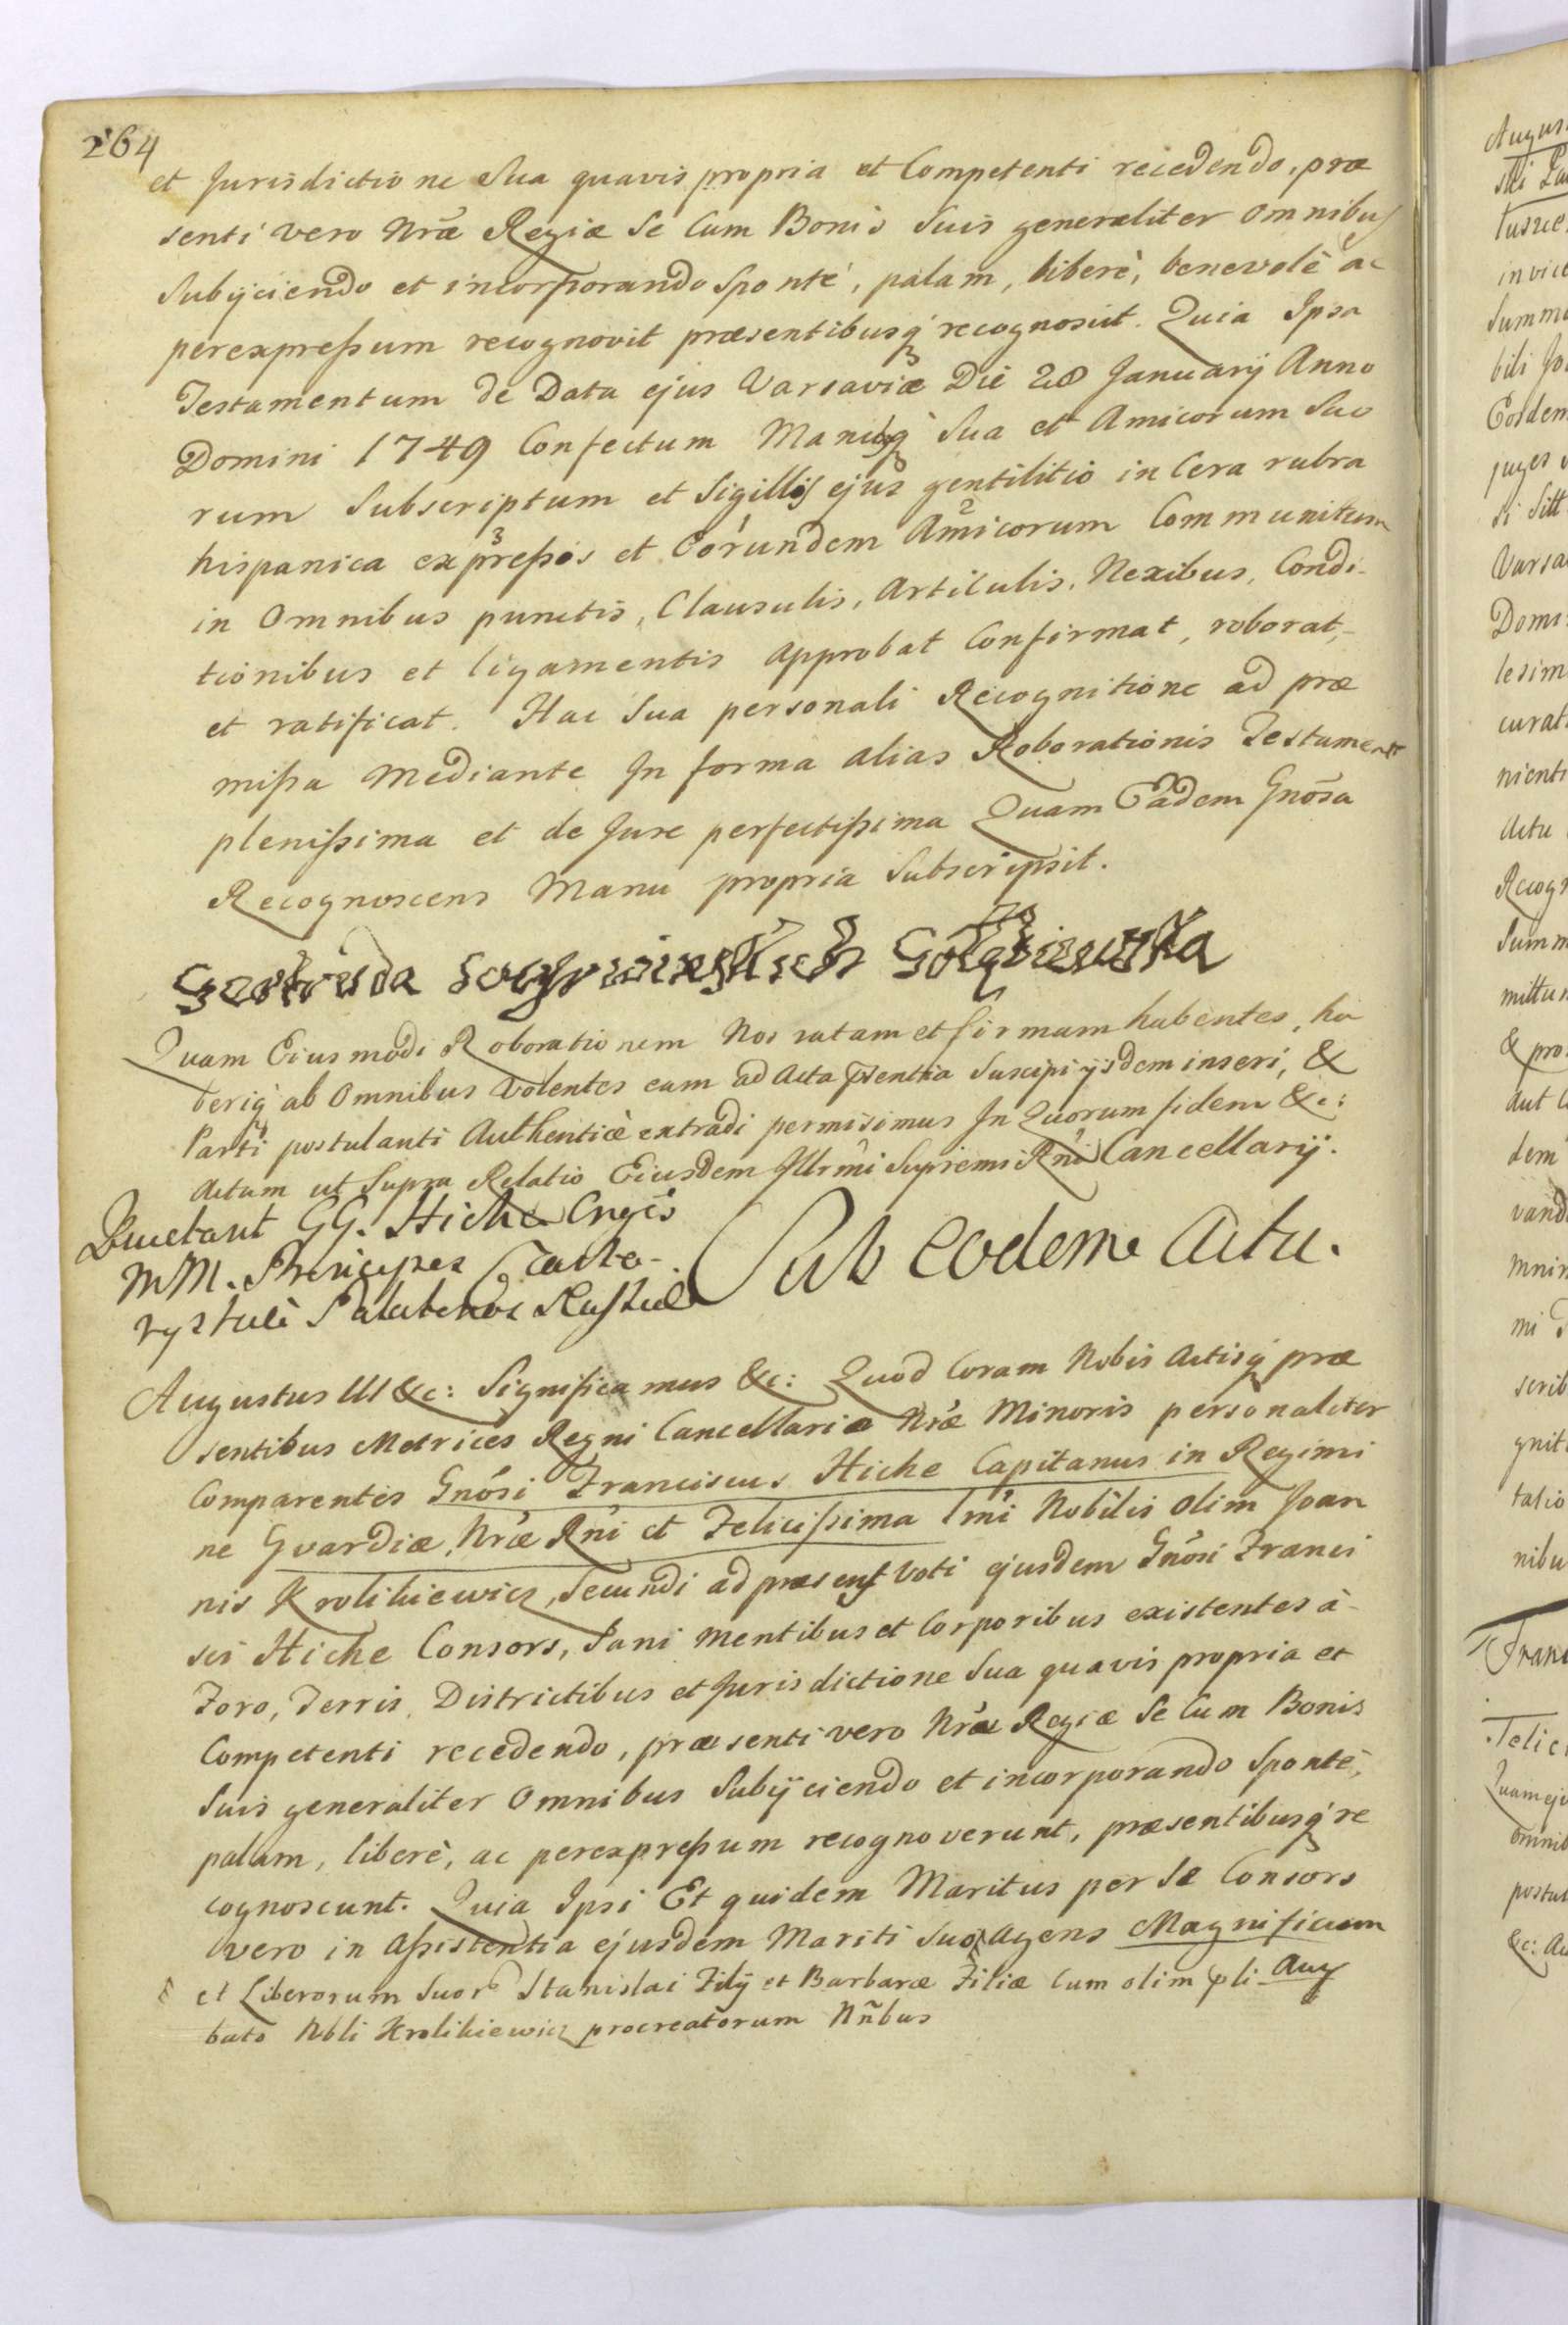 264
et Jurisdictione Sua quavis propria et Competenti recedendo, præ
senti vero Nrã Regiæ Se Cum Bonis Suis generaliter omnibus
Subijciendo et incorporando Sponté, palam, liberè, benevolè ac
perexpreßum recognovit præsentibusq recognoscit. Quia Ipsa
Testamentum de Data ejus Varsaviæ Die 28 Januarij Anno
Domini 1749 Confectum Manibq Sua et Amicorum Suo
rum Subscriptum et Sigillis ejus gentilitio in Cera rubra
hispanica expreßis et Eorundem Amicorum Communitum
in Omnibus punctis, Clausulis, Articulis, Nexibus, Condi-
tionibus et ligamentis approbat Confirmat, roborat,
et ratificat. Hac Sua personali Recognitione ad præ
mißa Mediante In forma alias Roborationis Testamenti
plenißima et de Jure perfectißima Quam Eadem Gnõsa
Recognoscens Manu propria Subscripsit.
Quam Eiusmodi Roborationem Nos ratam et firmam habentes, ha
beriq ab Omnibus Volentes eam ad Acta pñentia Suscipi ijsdem inseri, &
Parti postulanti Authenticè extradi permisimus In Quorum fidem &c:
Actum ut Supra Relatio Eiusdem Illrmi Supremi Rni Cancellarij.
Quietant GG. Hiche Cnges
MM. Principes Czarto-
ryskie Palatinos Russiæ
Sub eodem Actu.
Augustus III &c: Significamus &c: Quod Coram Nobis Actisq præ
sentibus Metrices Regni Cancellariæ Nræ Minoris personaliter
Comparentes Gnõsi Franciscus Hiche Capitanus in Regimi
ne Gvardiæ Nræ Rni et Felicißima 1mi Nobilis olim Joan
nis Krolikiewicz, Secundi ad præsens Voti ejusdem Gnõsi Franci
sci Hiche Consors, Sani mentibus et Corporibus existentes à
Foro, Terris, Districtibus et Jurisdictione Sua quavis propria et
Competenti recedendo, præsenti vero Nræ Regiæ Se Cum Bonis
Suis generaliter Omnibus Subijciendo et incorporando Spontè,
palam, liberè, ac perexpreßum recognoverunt, præsentibusq re
cognoscunt. Quia Ipsi Et quidem Maritus per Se Consors
vero in Aßistentia ejusdem Mariti Sui Agens Magnificum
et Liberorum Suor Stanislai Filij et Barbaræ Filiæ Cum olim pli Aug
bato Nbli Krolikiewicz procreatorum Nñbus